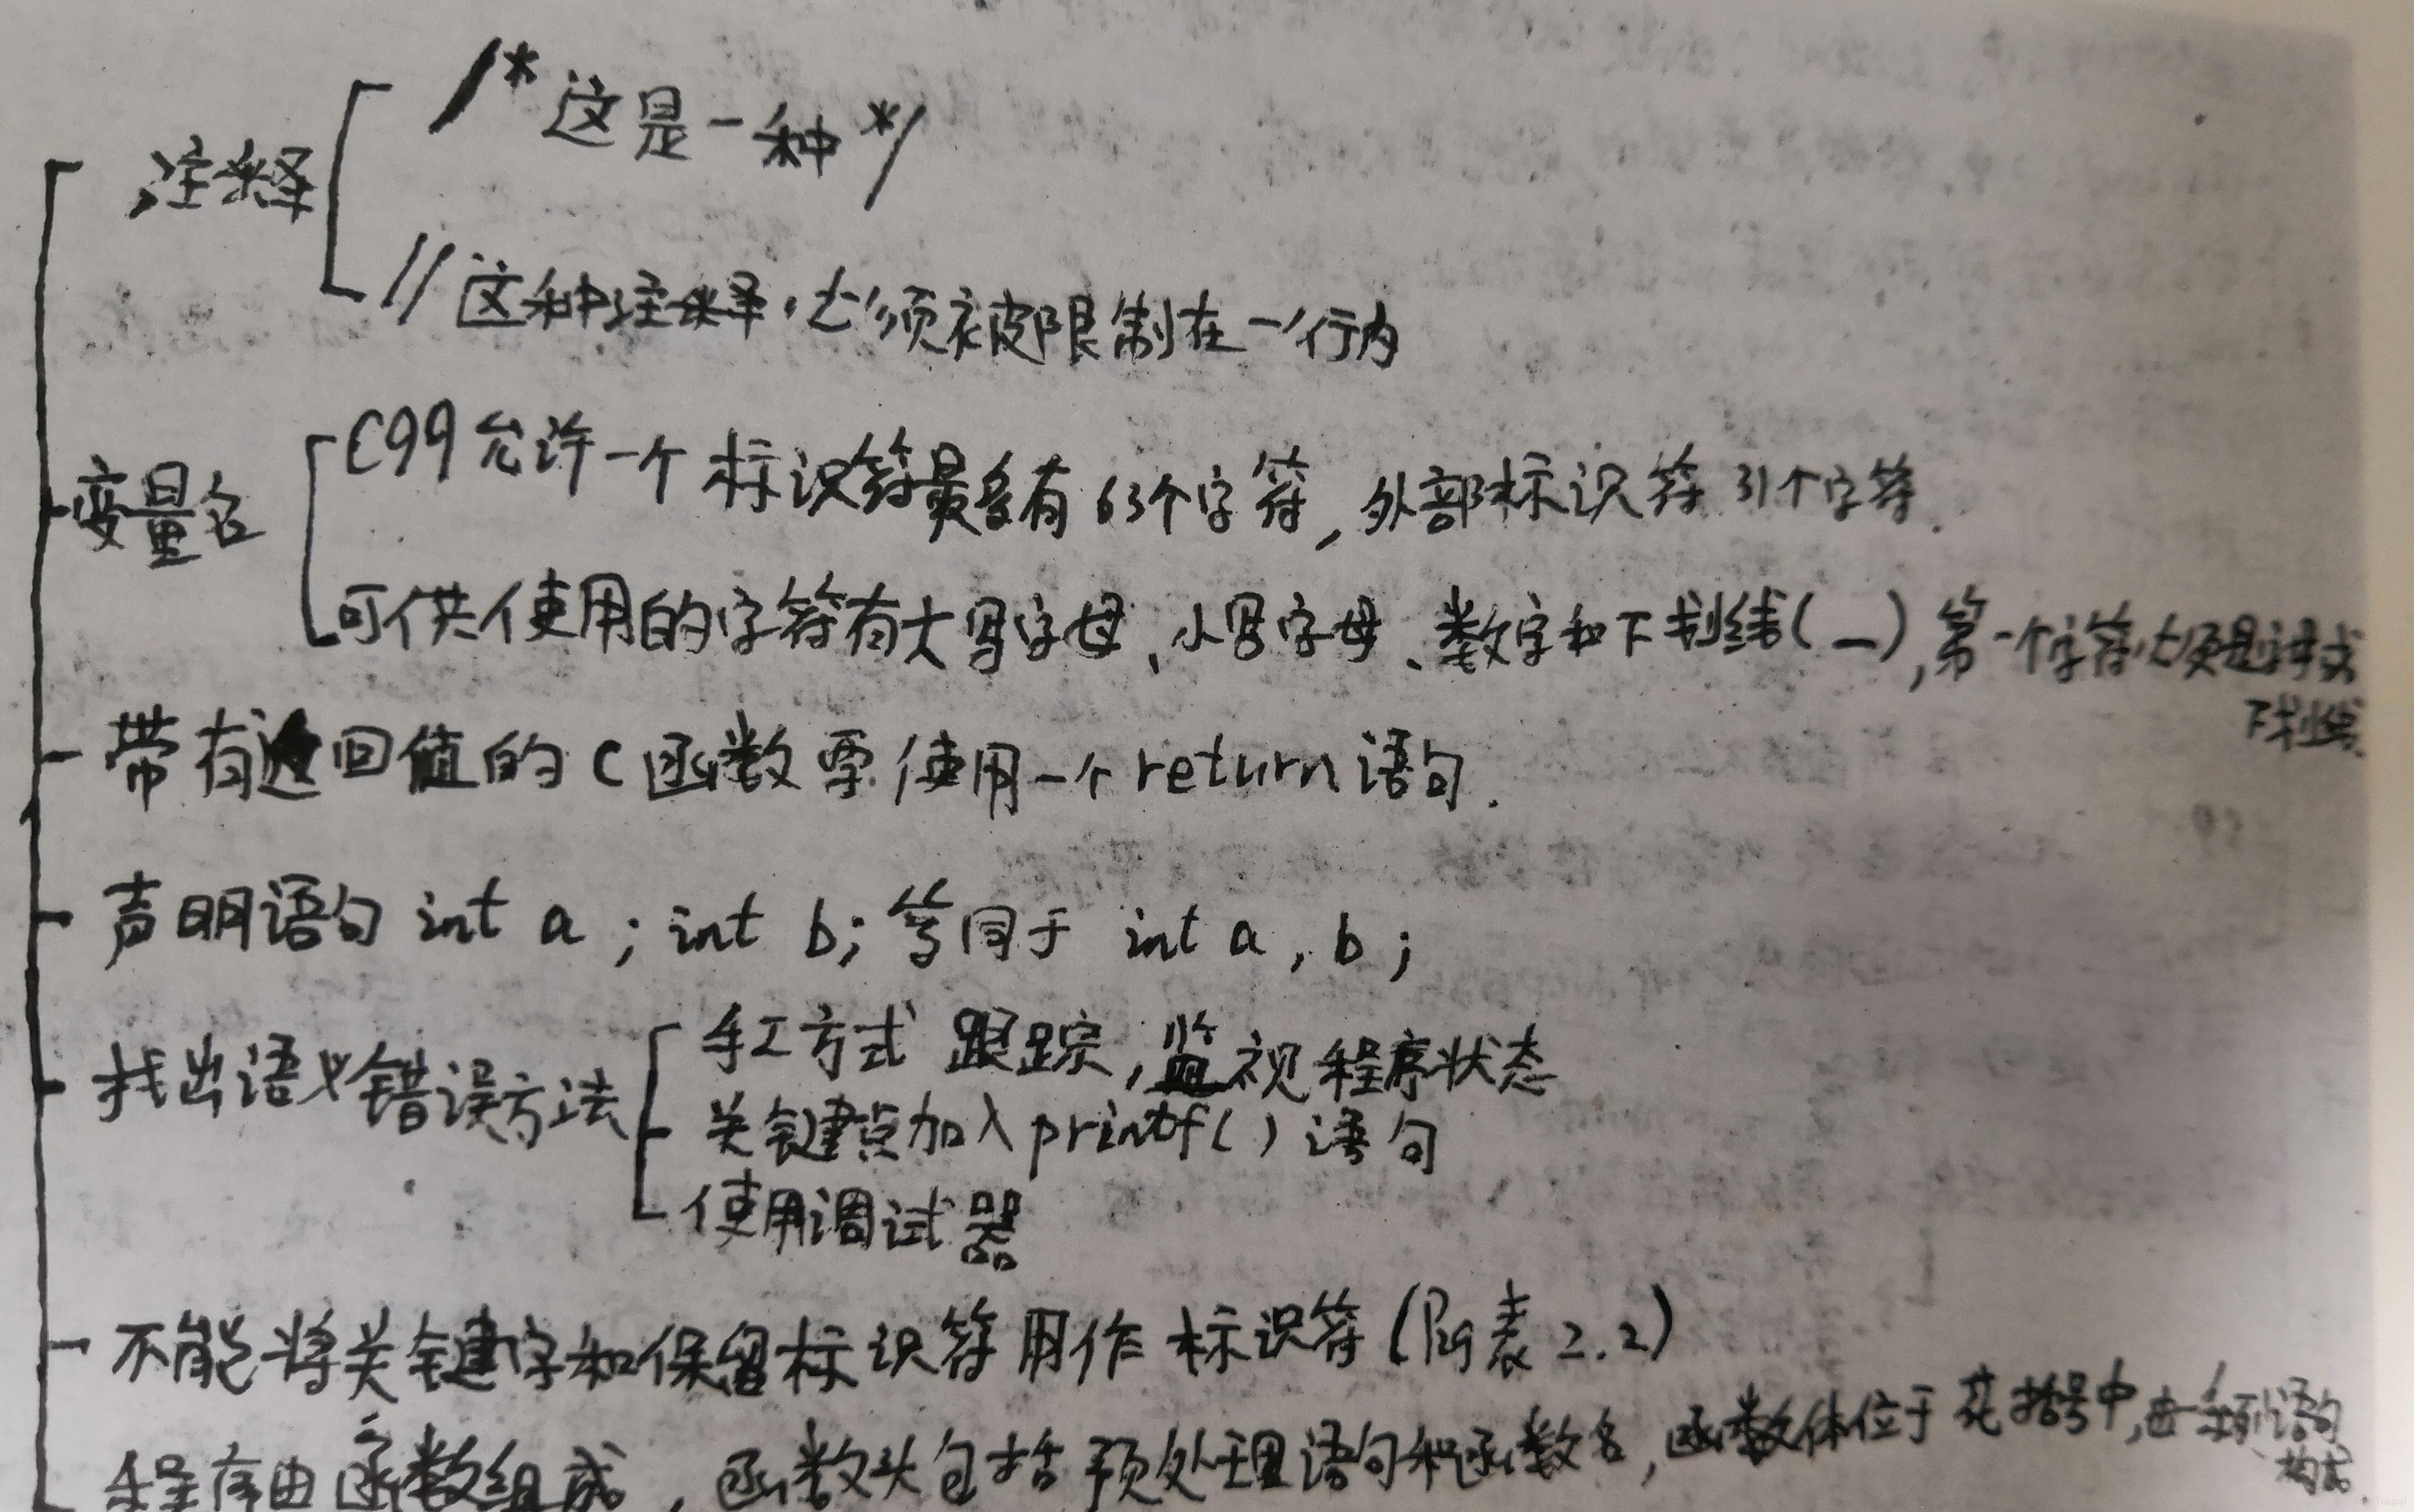 /*这是一种*/
注释
//这种注释,必须被限制在一行内
C99允许一个标识符最多有63个字符,外部标识符31个字符.
变量名
可供使用的字符有大写字母、小写字母、数字和下划线(_),第一个字符必须是字母或
下划线.
带有返回值的C函数要使用一个return语句.
声明语句 int a ; int b; 等同于 int a , b ;
手工方式 跟踪,监视程序状态
找出语义错误方法
关键点加入printf()语句
使用调试器
不能将关键字和保留标识符用作标识符(附表2.2)
程序由函数组成,函数头包括预处理语句和函数名,函数体位于花括号中,由一系列语句
构成